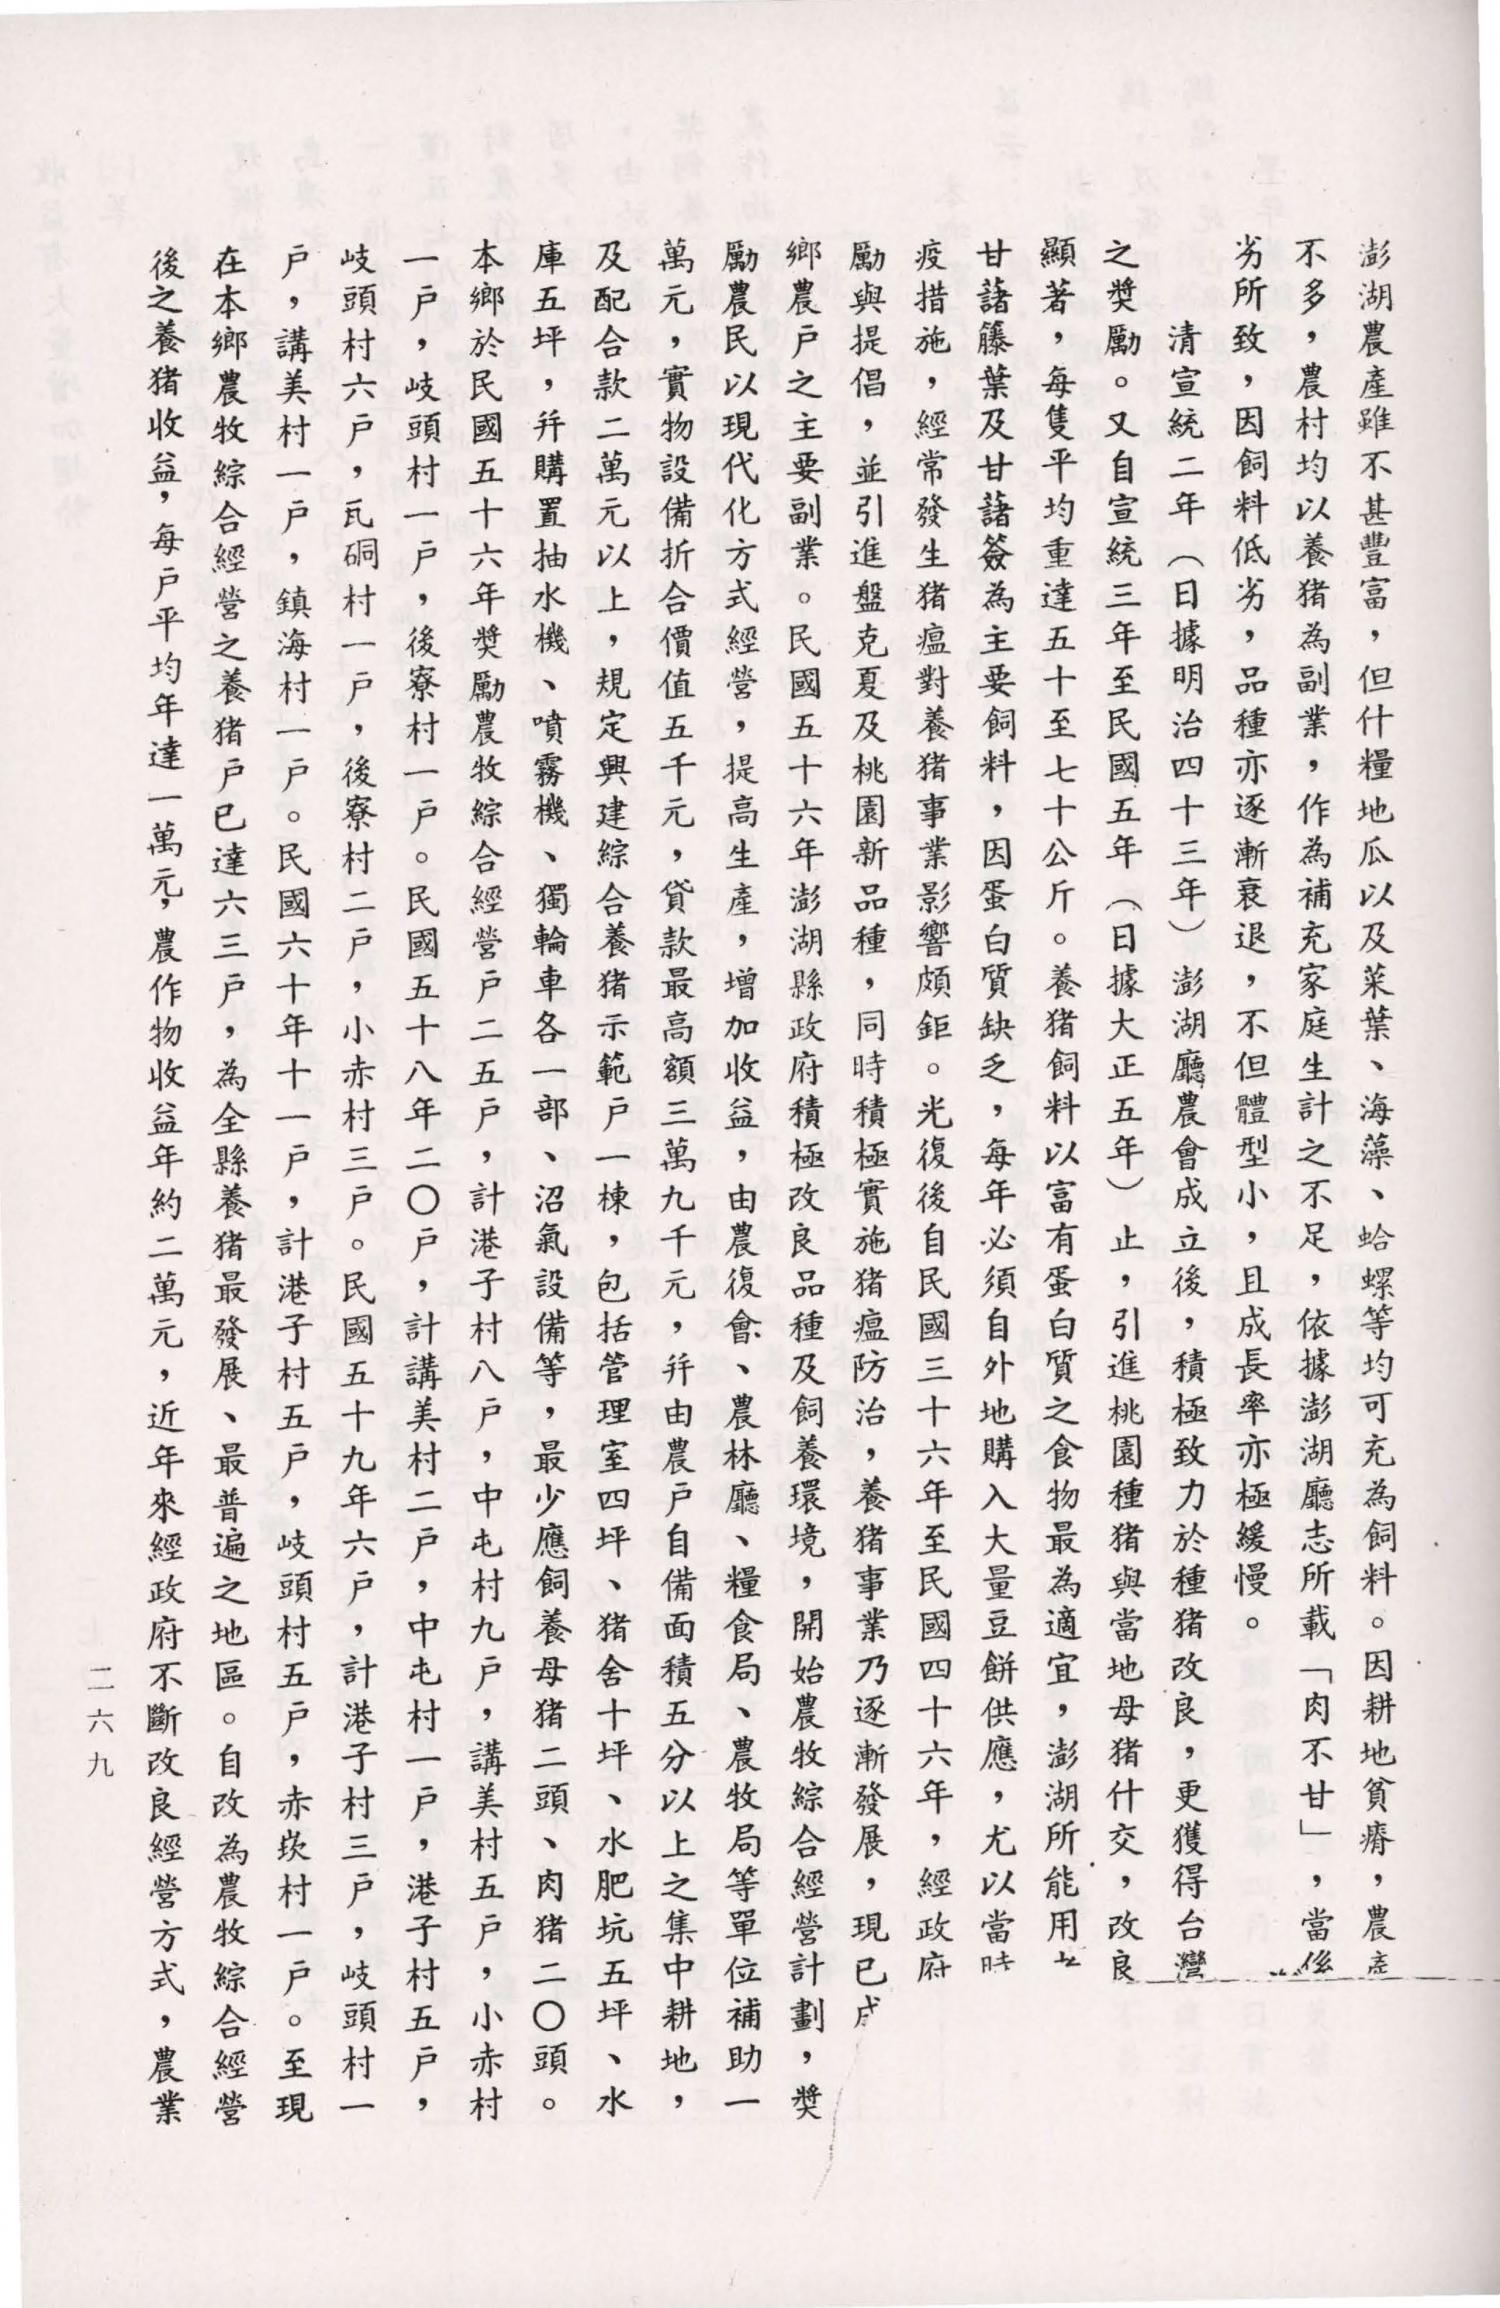 澎湖農產雖不甚豐富，但什糧地瓜以及菜葉、海藻、蛤螺等均可充為飼料。因耕地貧瘠，農產
不多，農村均以養猪為副業，作為補充家庭生計之不足，依據澎湖廳志所載「肉不甘」，當係
劣所致，因飼料低劣，品種亦逐漸衰退，不但體型小，且成長率亦極緩慢。
清宣統二年（日據明治四十三年）澎湖廳農會成立後，積極致力於種猪改良，更獲得台灣
之獎勵。又自宣統三年至民國五年（日據大正五年）止，引進桃園種猪與當地母猪什交，改良
顯著，每隻平均重達五十至七十公斤。養猪飼料以富有蛋白質之食物最為適宜，澎湖所能用
甘藷籐葉及甘藷簽為主要飼料，因蛋白質缺乏，每年必須自外地購入大量豆餅供應，尤以當時
疫措施，經常發生猪瘟對養猪事業影響頗鉅。光復後自民國三十六年至民國四十六年，經政府
勵與提倡，並引進盤克夏及桃園新品種，同時積極實施猪瘟防治，養猪事業乃逐漸發展，現已成
鄉農戶之主要副業。民國五十六年澎湖縣政府積極改良品種及飼養環境，開始農牧綜合經營計劃，獎
勵農民以現代化方式經營，提高生產，增加收益，由農復會、農林廳、糧食局、農牧局等單位補助一
萬元，實物設備折合價值五千元，貸款最高額三萬九千元，幷由農戶自備面積五分以上之集中耕地，
及配合款二萬元以上，規定興建綜合養猪示範戶一棟，包括管理室四坪、猪舍十坪、水肥坑五坪、水
庫五坪，幷購置抽水機、噴霧機、獨輪車各一部、沼氣設備等，最少應飼養母猪二頭、肉猪二〇頭。
本鄉於民國五十六年獎勵農牧綜合經營戶二五戶，計港子村八戶，中屯村九戶，講美村五戶，小赤村
一戶，岐頭村一戶，後寮村一戶。民國五十八年二〇戶，計講美村二戶，中屯村一戶，港子村五戶，
岐頭村六戶，瓦硐村一戶，後寮村二戶，小赤村三戶。民國五十九年六戶，計港子村三戶，岐頭村一
戶，講美村一戶，鎮海村一戶。民國六十年十一戶，計港子村五戶，岐頭村五戶，赤崁村一戶。至現
在本鄉農牧綜合經營之養猪戶已達六三戶，為全縣養猪最發展、最普遍之地區。自改為農牧綜合經營
後之養猪收益，每戶平均年達一萬元，農作物收益年約二萬元，近年來經政府不斷改良經營方式，農業
二六九